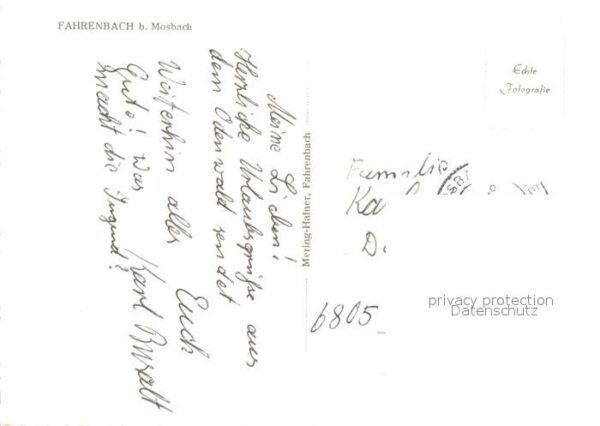 FAHRENBACH b. Mosbach
Meine Lieben!
Herzliche Urlaubsgrüße aus
dem Odenwald sendet
Euch
Weiterhin alles
Gute! Was
macht die Jugend?
Karl
Mering-Hafner, Fahrenbach
Echte
Fotografie
Familie
Ka
D.
6805
privacy protection
Datenschutz